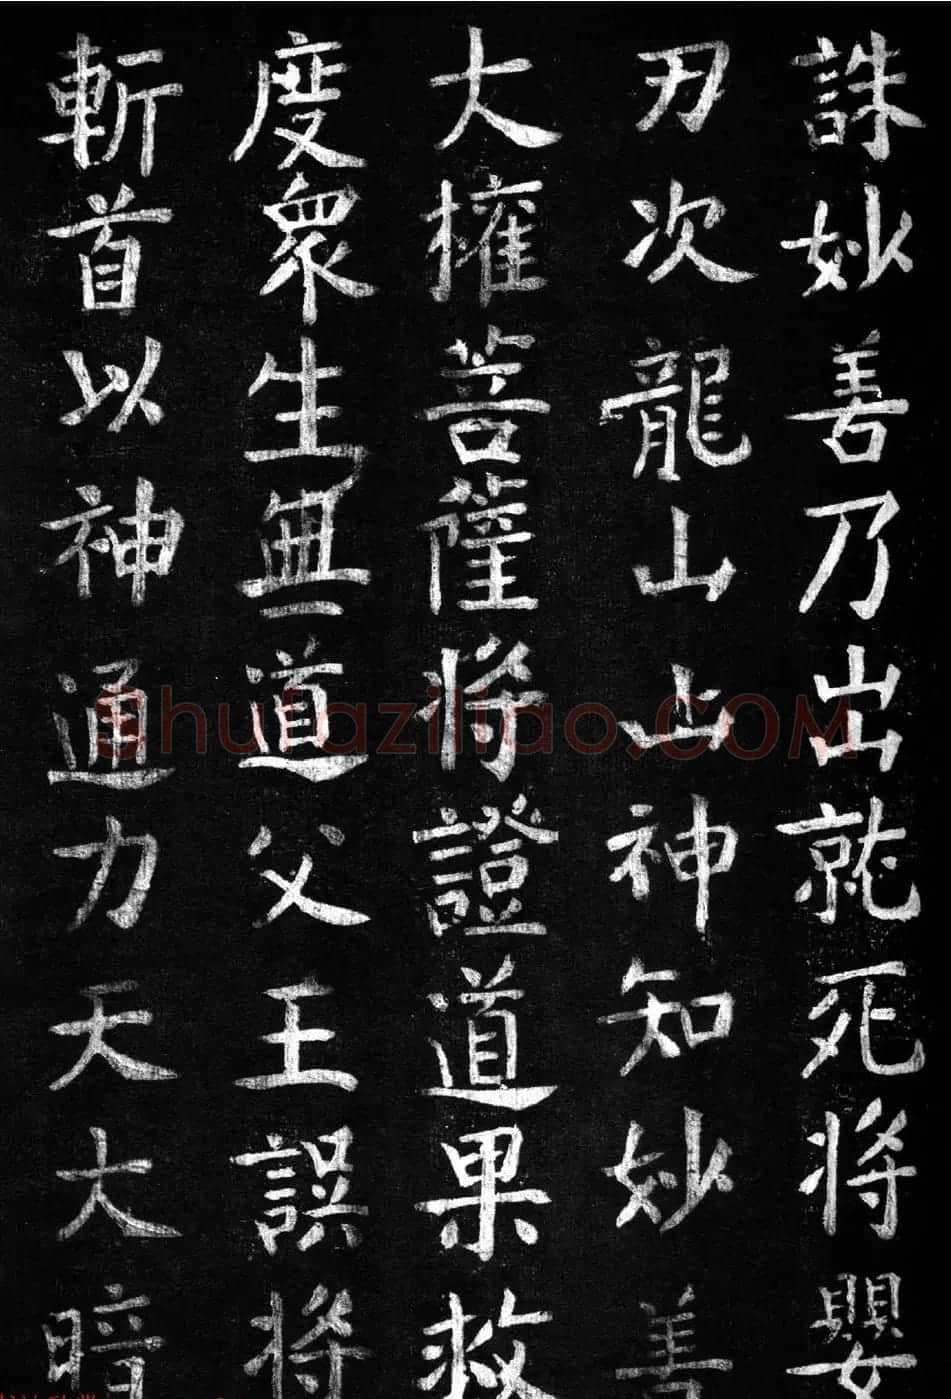 誅妙善乃出就死将嬰
刃次龍山山神知妙善
大權菩薩将證道果救
度衆生無道父王誤将
斬首以神通力天大暗
Shufaziliao.COM